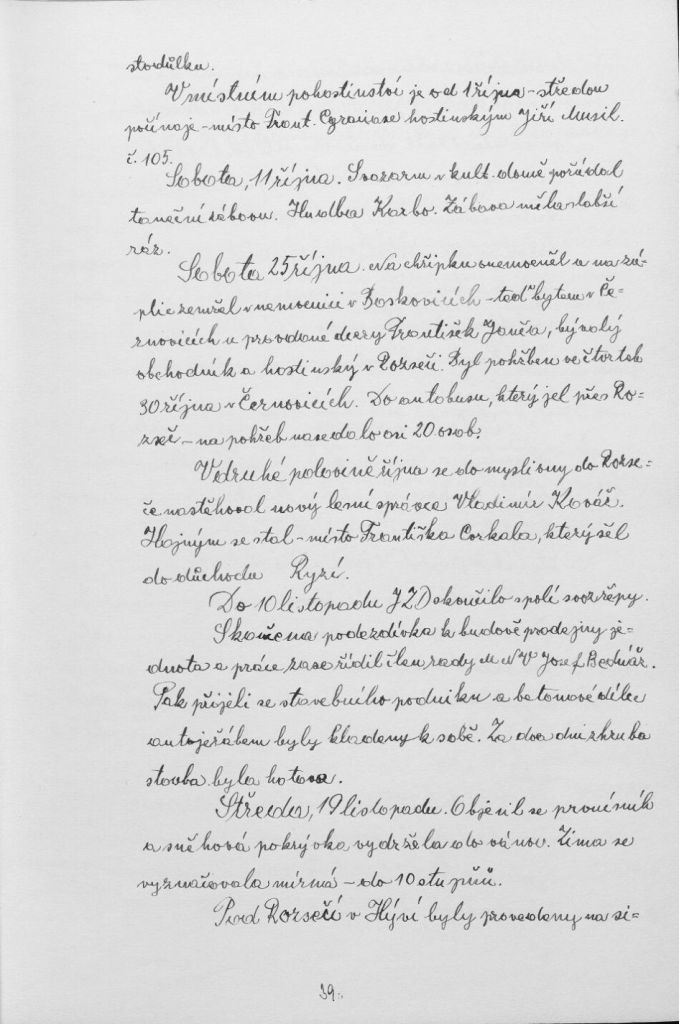 stodůlku.
V místním pohostinství je od 1 října - středou
počínaje - místo Frant. Cyraiase hostinským Jiří Musil.
č. 105.
Sobota, 11 října. Svazarm v kult. domě pořádal
taneční zábavu. Hudba Karbo. Zábava měla slabší
ráz.
Sobota 25 října. Na chřipku onemocněl a na zá-
plic zemřel v nemocnici v Boskovicích - teď bytem v Če-
rnovicích u provdané dcery František Janča, bývalý
obchodník a hostinský v Rozseči. Byl pohřben ve čtvrtek
30 října v Černovicích. Do autobusu, který jel přes Ro-
zseč - na pohřeb nasedalo asi 20 osob.
V druhé polovině října se do myslivny do Rozse-
če nastěhoval nový lesní správce Vladimír Kovář.
Hajným se stal - místo Františka Corkala, který šel
do důchodu Ryzí.
Do 10 listopadu JZD skončilo spolí svoz řepy.
Skončena podezdívka k budově prodejny je-
dnota a práce zase řídil člen rady MNV Josef Bednář.
Pak přijeli ze stavebního podniku a betonové dílce
autojeřábem byly kladeny k sobě. Za dva dni zhruba
stavba byla hotova.
Středa, 19 listopadu. Objevil se první sníh
a sněhová pokrývka vydržela do vánoc. Zima se
vyznačovala mírná - do 10 stupňů.
Pod Rozsečí v Hýví byly provedeny na si-
39.